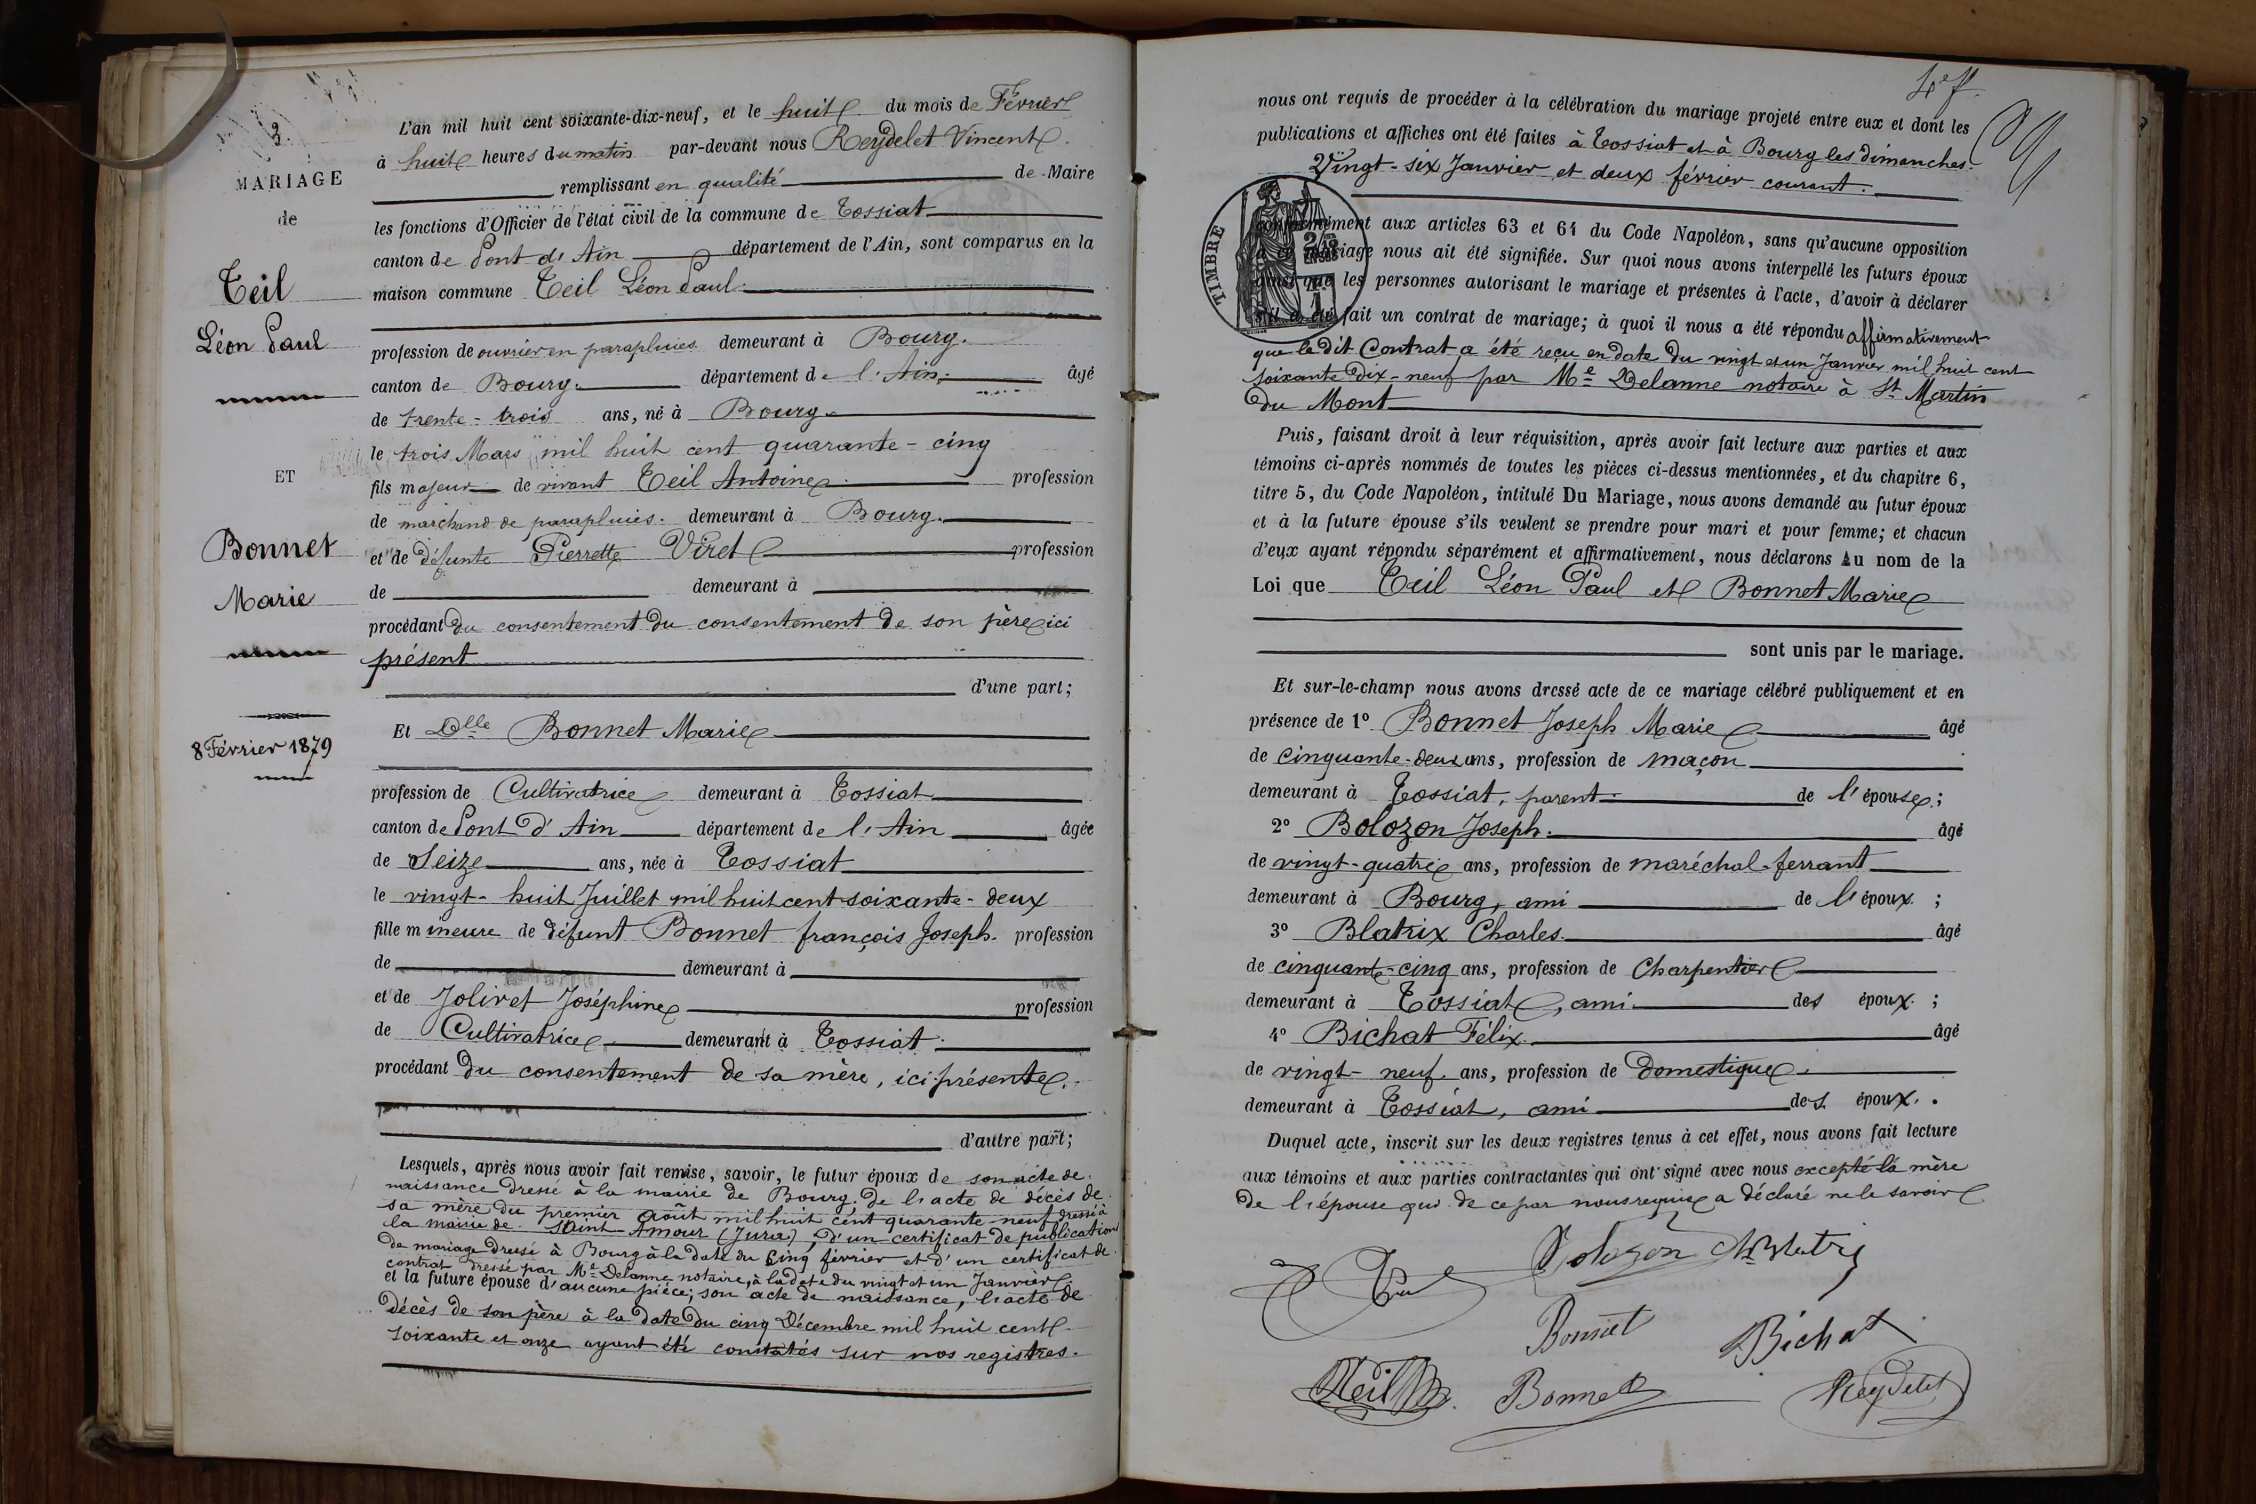 2
MARIAGE
de
Teil
Léon Paul
ET
Bonnet
Marie
8 Février 1879
L'an mil huit cent soixante-dix-neuf, et le huit du mois de Février
à huit heures du matin par-devant nous Reydelet Vincent
remplissant en qualité de Maire
les fonctions d'Officier de l'état civil de la commune de Tossiat
canton de Pont d'Ain département de l'Ain, sont comparus en la
maison commune Teil Léon Paul
profession de ouvrier en parapluies demeurant à Bourg.
canton de Bourg. département de l'Ain, âgé
de trente-trois ans, né à Bourg
le trois Mars mil huit cent quarante-cinq
fils majeur de vivant Teil Antoine profession
de marchand de parapluies. demeurant à Bourg.
et de défunte Pierrette Viret profession
de demeurant à
procédant du consentement du consentement de son père ici
présent
d'une part;
Et Dlle Bonnet Marie
profession de Cultivatrice demeurant à Tossiat
canton de Pont d'Ain département de l'Ain âgée
de Seize ans, née à Tossiat
le vingt-huit Juillet mil huit cent soixante-deux
fille mineure de défunt Bonnet françois Joseph. profession
de demeurant à
et de Jolivet Joséphine profession
de Cultivatrice demeurant à Tossiat.
procédant du consentement de sa mère, ici présente.
d'autre part;
Lesquels, après nous avoir fait remise, savoir, le futur époux de son acte de
naissance dressé à la mairie de Bourg, de l'acte de décès de
sa mère du premier Août mil huit cent quarante-neuf dressé à
la mairie de Saint-Amour (Jura), d'un certificat de publication
de mariage dressé à Bourg à la date du Cinq février et d'un certificat de
contrat dressé par Me Delanne notaire, à la date du vingt et un Janvier
et la future épouse d'aucune pièce; son acte de naissance, l'acte de
décès de son père à la date du cinq Décembre mil huit cent
soixante et onze ayant été constatés sur nos registres.
nous ont requis de procéder à la célébration du mariage projeté entre eux et dont les
publications et affiches ont été faites à Tossiat et à Bourg les dimanches
Vingt-six Janvier et deux février courant.
TIMBRE
conformément aux articles 63 et 64 du Code Napoléon, sans qu'aucune opposition
à ce mariage nous ait été signifiée. Sur quoi nous avons interpellé les futurs époux
ainsi que les personnes autorisant le mariage et présentes à l'acte, d'avoir à déclarer
s'il a été fait un contrat de mariage; à quoi il nous a été répondu affirmativement
que le dit Contrat a été reçu en date du vingt et un Janvier mil huit cent
soixante dix-neuf par Me Delanne notaire à St Martin
du Mont
Puis, faisant droit à leur réquisition, après avoir fait lecture aux parties et aux
témoins ci-après nommés de toutes les pièces ci-dessus mentionnées, et du chapitre 6,
titre 5, du Code Napoléon, intitulé Du Mariage, nous avons demandé au futur époux
et à la future épouse s'ils veulent se prendre pour mari et pour femme; et chacun
d'eux ayant répondu séparément et affirmativement, nous déclarons Au nom de la
Loi que Teil Léon Paul et Bonnet Marie
sont unis par le mariage.
Et sur-le-champ nous avons dressé acte de ce mariage célébré publiquement et en
présence de 1º Bonnet Joseph Marie âgé
de cinquante-deux ans, profession de maçon
demeurant à Tossiat, parent de l'épouse;
2º Bolozon Joseph. âgé
de vingt-quatre ans, profession de maréchal-ferrant
demeurant à Bourg, ami de l'époux;
3º Blatrix Charles. âgé
de cinquante-cinq ans, profession de Charpentier
demeurant à Tossiat, ami des époux;
4º Bichat Félix. âgé
de vingt-neuf ans, profession de Domestique
demeurant à Tossiat, ami des époux.
Duquel acte, inscrit sur les deux registres tenus à cet effet, nous avons fait lecture
aux témoins et aux parties contractantes qui ont signé avec nous excepté la mère
de l'épouse qui de ce par nous requise a déclaré ne le savoir
Bolozon Ch Blatrix
Bonnet Bichat
Teil Bonnet Reydelet